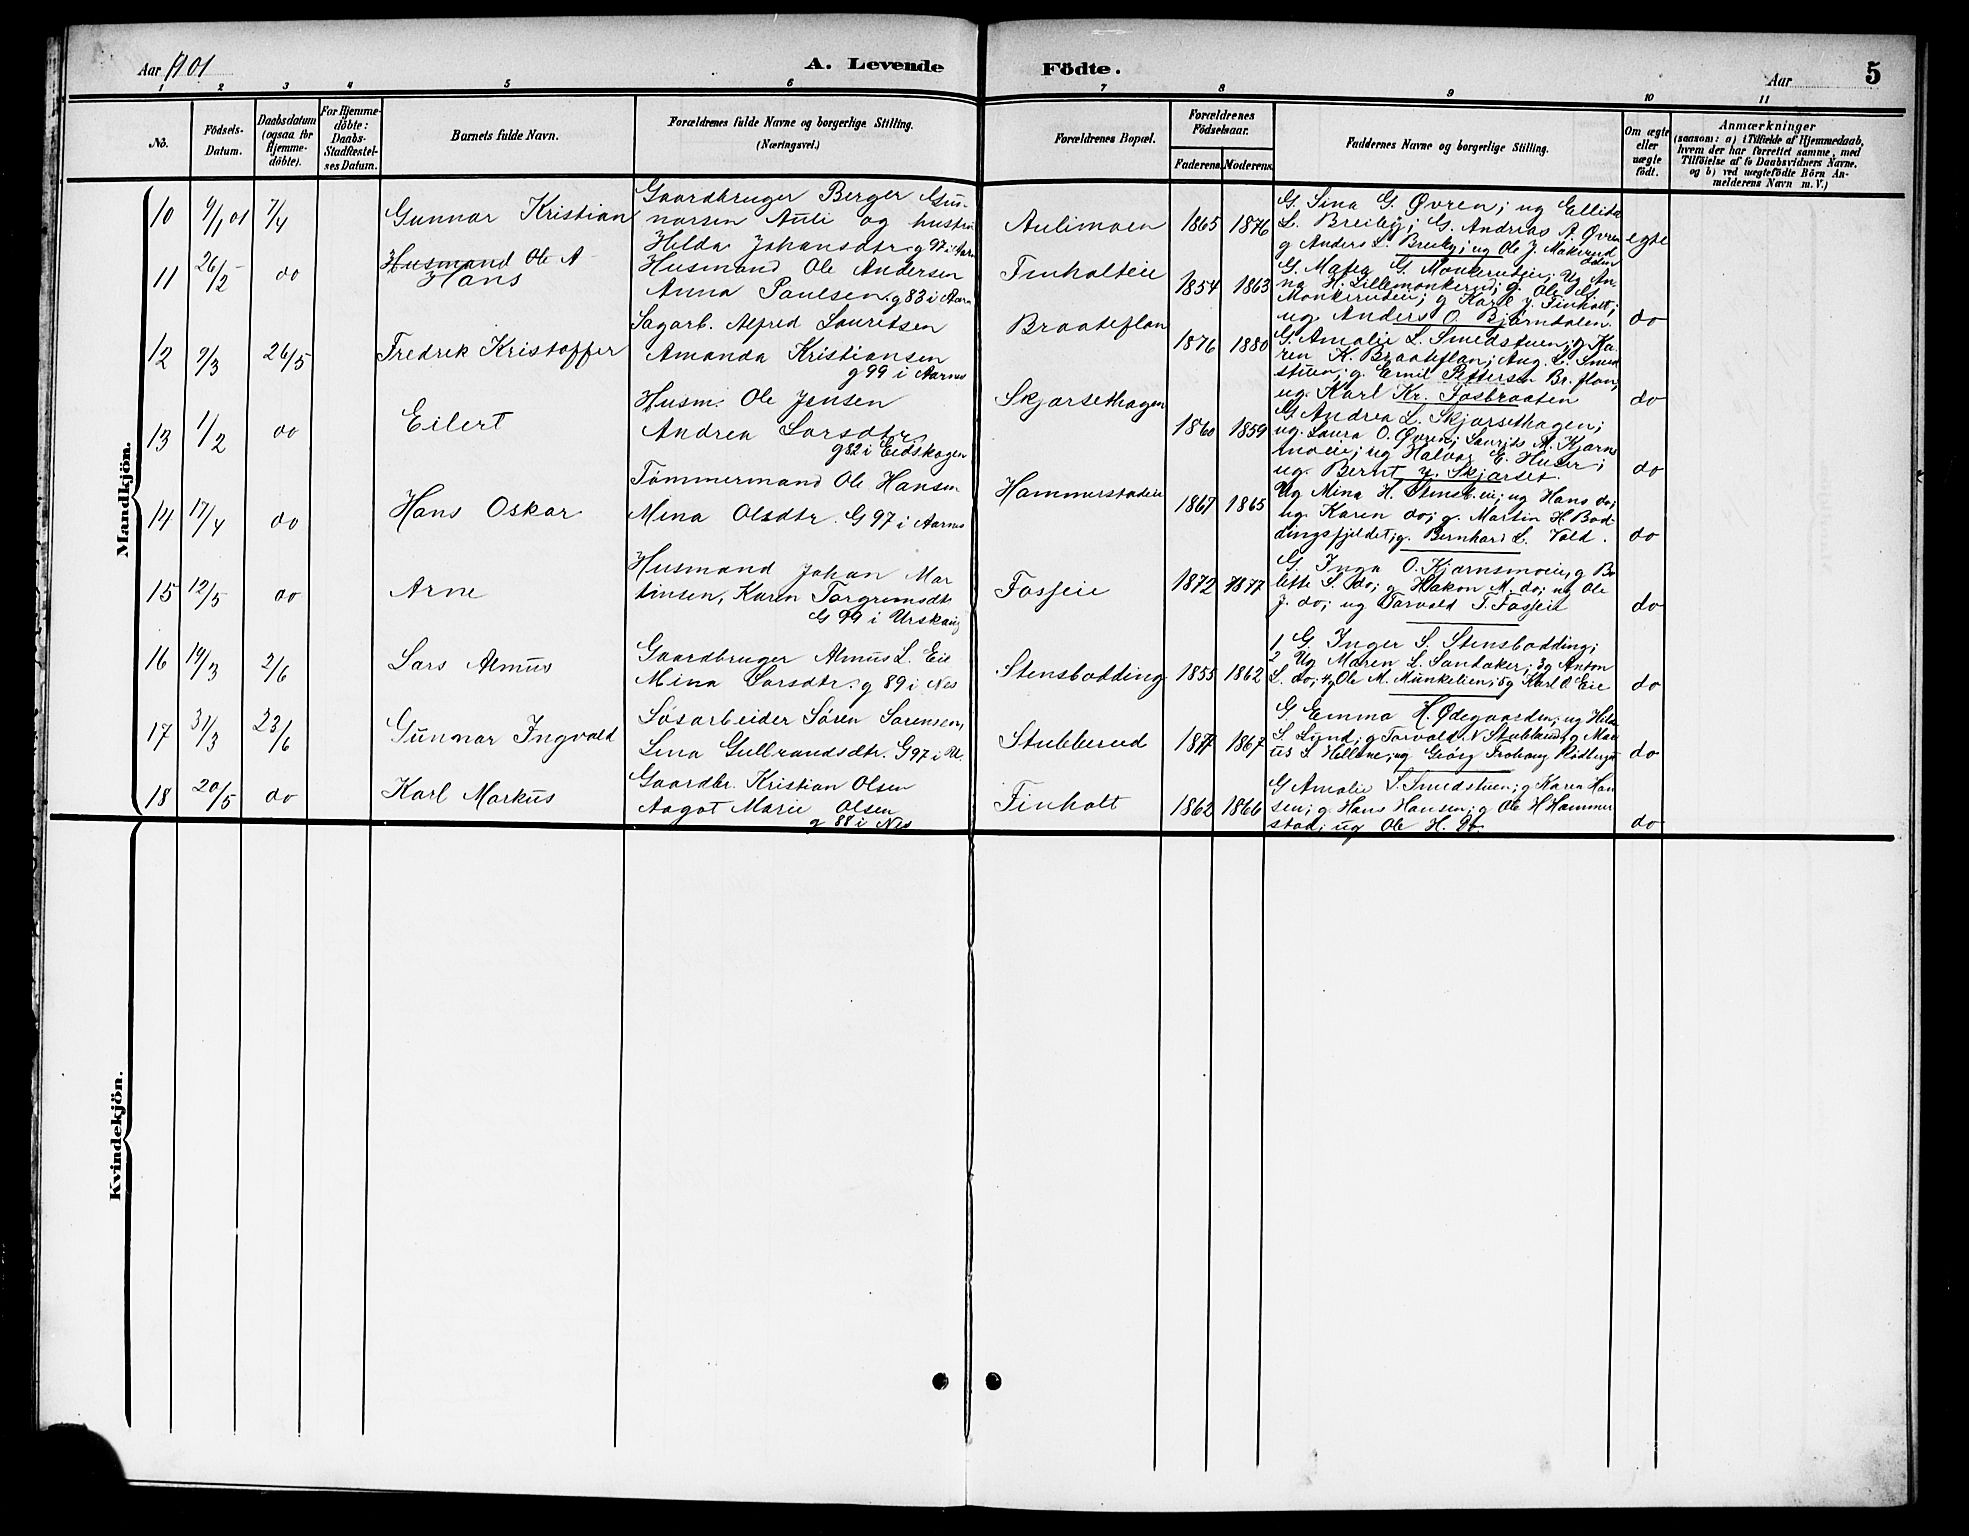 Aar 1901
A. Levende
Födte.
Aar
5
1 2 3 4 5 6 7 8 9 10 11
No.
Födsels-
Datum.
Daabsdatum
(ogsaa for
Hjemme-
döbte).
For Hjemme-
döbte:
Daabs-
Stadfæstel-
ses Datum.
Barnets fulde Navn.
Forældrenes fulde Navne og borgerlige Stilling.
(Næringsvei.)
Forældrenes Bopæl.
Forældrenes
Födselsaar.
Faderens.
Moderens.
Faddernes Navne og borgerlige Stilling.
Om ægte
eller
uægte
födt.
Anmærkninger
(saasom: a) i Tilfælde af Hjemmedaab,
hvem der har forrettet samme, med
Tilföielse af to Daabsvidners Navne.
og b) ved uægtefödte Börn An-
melderens Navn m. V.)
Mandkjön.
10 9/1 01 7/4
Gunnar Kristian
Gaardbruger Berger Gun-
narsen Auli og hustru
Hilda Johansdtr. g 97 i Aarn
Aulimoen
1865 1876
G. Sina G. Øvren; ug Ellida
L. Breiby; G. Andreas A. Øvren
g Anders L. Breiby; ug Ole J. Makerud
dalen
egte
11 26/2 do
Husmand Ole A-
Hans
Husmand Ole Andersen
Anna Paulsen. g 83 i Aarn
Finholteie
1854 1863
G. Matea G. Monkerudeie; Ug An-
na H. Lillemonkerud; g. Ole G.
Monkerudeie; g Karl J. Finholt;
ug. Anders O. Bjørndalen.
do
12 9/3 26/5
Fredrik Kristoffer
Sagarb. Alfred Lauritsen
Amanda Kristiansen
g 99 i Aarnes
Braateflan
1876 1880
G. Amalie L. Smedstuen; g Ka-
ren K. Braateflan; Aug. L. Smed
stuen; g. Emil Pettersen Br. flan;
ug. Karl Kr. Fosbraaten
do
13 1/2 do
Eilert
Husm. Ole Jensen
Andrea Larsdtr.
g 82 i Eidskogen
Skjørsethagen
1860 1859
G. Andrea L. Skjørsethagen;
ug. Laura O. Øvren; Laurits A. Kjærns
moeie; ug Halvor E. Huser;
ug. Bernt J. Skjørset.
do
14 17/4 do
Hans Oskar
Tømmermand Ole Hansen
Mina Olsdtr. G 97 i Aarnes
Hammerstadeie
1867 1865
Ug Mina H. Stensb. eie; ug Hans do;
ug. Karen do; g. Martin H. Bod-
dingsfjeldet; g. Bernhard L. Vold.
do
15 12/5 do
Arne
Husmand Johan Mar
tinsen, Karen Torgrimsdtr
G 99 i Urskoug
Fosseie
1872 1877
G. Inga O. Kjærnsmoeie; g Bo
lette S. do; g Hakon A. do; ug Ole
J. do; ug Torvald T. Fosseie
do
16 19/3 2/6
Lars Almus
Gaardbruger Almus L. Eie
Mina Larsdtr. g 89 i Nes
Stensbodding
1855 1862
1 G. Inger S. Stensbodding;
2 Ug Maren L. Sandaker; 3g Anton
L. do; 4g Ole M. Munkelien; 5g Karl O. Eie
do
17 31/3 23/6
Gunnar Ingvald
Løsarbeider Søren Sørensen,
Lina Gulbrandsdtr. G 97 i U.
Stubberud
1877 1867
G. Emma H. Ødegaarden; ug Hilda
S. Lund; g Torvald N. Stubberud; g Mar
ius S. Hellene; ug Georg
do
18 20/5 do
Karl Markus
Gaardbr. Kristian Olsen
Aagot Marie Olsen
g 88 i Nes
Finholt
1862 1866
G Amalie L. Smedstuen; g Karen Han
sen; g Hans Hansen; g Ole H Hammer
stad; ug Ole H. do
do
Kvindekjön.